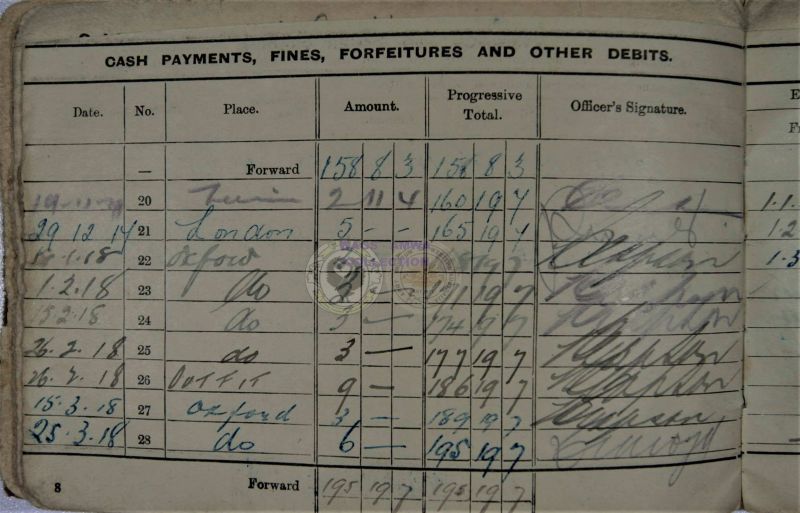 CASH PAYMENTS, FINES, FORFEITURES AND OTHER DEBITS.
Date. No. Place. Amount. Progressive Total. Officer's Signature.
— Forward 158 8 3 158 8 3
20 2 11 4 160 19 7
29 12 17 21 London 5 - - 165 19 7
18 22 Oxford
1.2.18 23 do 3 — 171 19 7
15.2.18 24 do 3 — 174 19 7
26.2.18 25 do 3 — 177 19 7
26.2.18 26 OUTFIT 9 — 186 19 7
15.3.18 27 Oxford 3 — 189 19 7
25.3.18 28 do 6 — 195 19 7
8 Forward 195 19 7 195 19 7
MASS AMWA
COLLECTION
E
F
1.1.
1.2
1.3